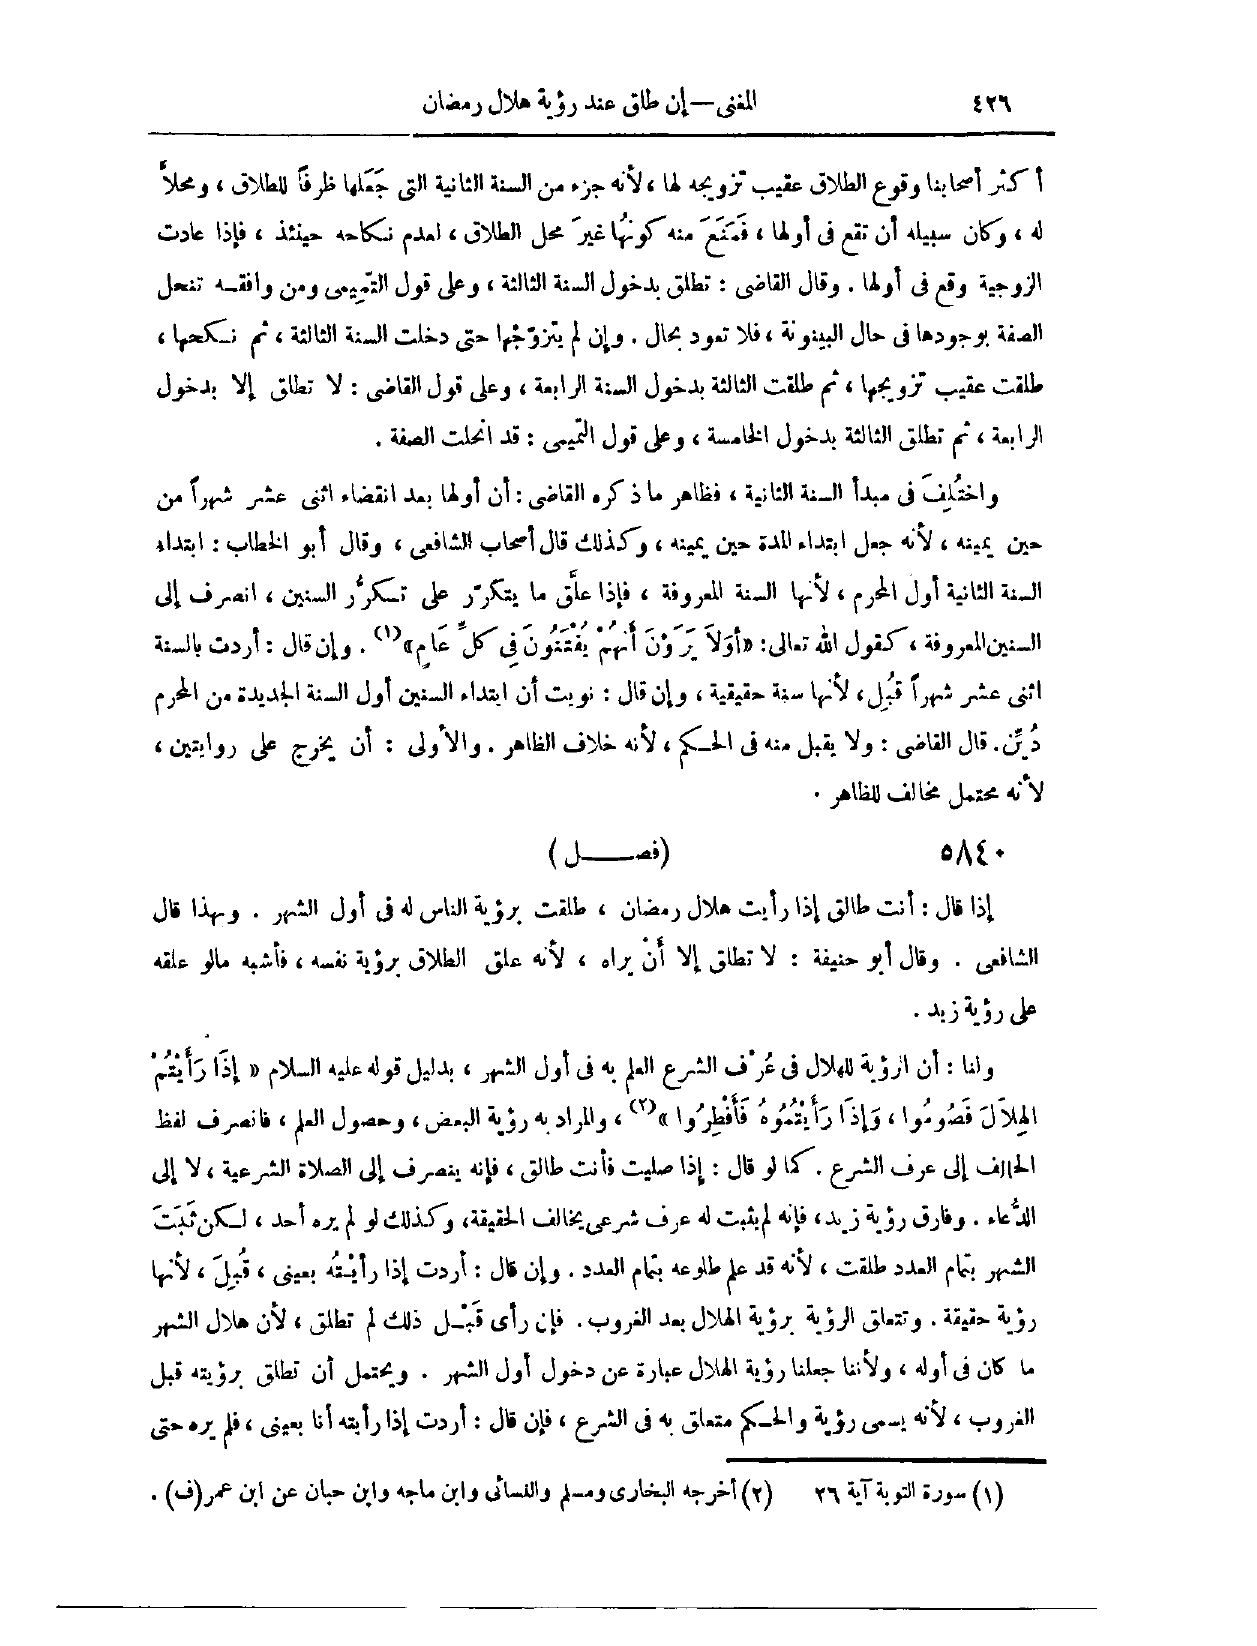 ٤٢٦ المغنى — إن طلق عند رؤية هلال رمضان
أكثر أصحابنا وقوع الطلاق عقيب تزويجه لها ، لأنه جزء من السنة الثانية التى جَعَلها ظرفاً للطلاق ، ومحلاً
له ، وكان سبيله أن تقع فى أولها ، فَمَنَعَ منه كونُها غيرَ محل الطلاق ، لعدم نكاحه حينئذ ، فإذا عادت
الزوجية وقع فى أولها . وقال القاضى : تطلق بدخول السنة الثالثة ، وعلى قول التَّمِيمى ومن وافقه تنحل
الصفة بوجودها فى حال البينونة ، فلا تعود بحال . وإن لم يتزوّجْها حتى دخلت السنة الثالثة ، ثم نكحها ،
طلقت عقيب تزويجها ، ثم طلقت الثالثة بدخول السنة الرابعة ، وعلى قول القاضى : لا تطلق إلا بدخول
الرابعة ، ثم تطلق الثالثة بدخول الخامسة ، وعلى قول التَّميمى : قد انحلت الصفة .
واختُلِفَ فى مبدأ السنة الثانية ، فظاهر ما ذكره القاضى : أن أولها بعد انقضاء اثنى عشر شهراً من
حين يمينه ، لأنه جعل ابتداء المدة حين يمينه ، وكذلك قال أصحاب الشافعى ، وقال أبو الخطاب : ابتداء
السنة الثانية أول المحرم ، لأنها السنة المعروفة ، فإذا علَّق ما يتكرّر على تكرُّر السنين ، انصرف إلى
السنين المعروفة ، كقول الله تعالى: «أَوَلاَ يَرَوْنَ أَنَّهُمْ يُفْتَنُونَ فِى كُلِّ عَامٍ»(١) . وإن قال : أردت بالسنة
اثنى عشر شهراً قُبِل ، لأنها سنة حقيقية ، وإن قال : نويت أن ابتداء السنين أول السنة الجديدة من المحرم
دُيِّن. قال القاضى : ولا يقبل منه فى الحكم ، لأنه خلاف الظاهر . والأولى : أن يخرج على روايتين ،
لأنه محتمل مخالف للظاهر .
٥٨٤٠ (فصـــل)
إذا قال : أنت طالق إذا رأيت هلال رمضان ، طلقت برؤية الناس له فى أول الشهر . وبهذا قال
الشافعى . وقال أبو حنيفة : لا تطلق إلا أنْ يراه ، لأنه علق الطلاق برؤية نفسه ، فأشبه مالو علقه
على رؤية زيد .
ولنا : أن الرؤية للهلال فى عُرْف الشرع العلم به فى أول الشهر ، بدليل قوله عليه السلام « إِذَا رَأَيْتُمْ
الْهِلاَلَ فَصُومُوا ، وَإِذَا رَأَيْتُمُوهُ فَأَفْطِرُوا »(٢) ، والمراد به رؤية البعض ، وحصول العلم ، فانصرف لفظ
الحالف إلى عرف الشرع . كما لو قال : إذا صليت فأنت طالق ، فإنه ينصرف إلى الصلاة الشرعية ، لا إلى
الدُّعاء . وفارق رؤية زيد ، فإنه لم يثبت له عرف شرعى يخالف الحقيقة، وكذلك لو لم يره أحد ، لكن ثَبَتَ
الشهر بتمام العدد طلقت ، لأنه قد علم طلوعه بتمام العدد . وإن قال : أردت إذا رأيْتُه بعينى ، قُبِلَ ، لأنها
رؤية حقيقة . وتتعلق الرؤية برؤية الهلال بعد الغروب . فإن رأى قَبْل ذلك لم تطلق ، لأن هلال الشهر
ما كان فى أوله ، ولأننا جعلنا رؤية الهلال عبارة عن دخول أول الشهر . ويحتمل أن تطلق برؤيته قبل
الغروب ، لأنه يسمى رؤية والحكم متعلق به فى الشرع ، فإن قال : أردت إذا رأيته أنا بعينى ، فلم يره حتى
(١) سورة التوبة آية ٢٦ (٢) أخرجه البخارى ومسلم والنسائى وابن ماجه وابن حبان عن ابن عمر(ف) .